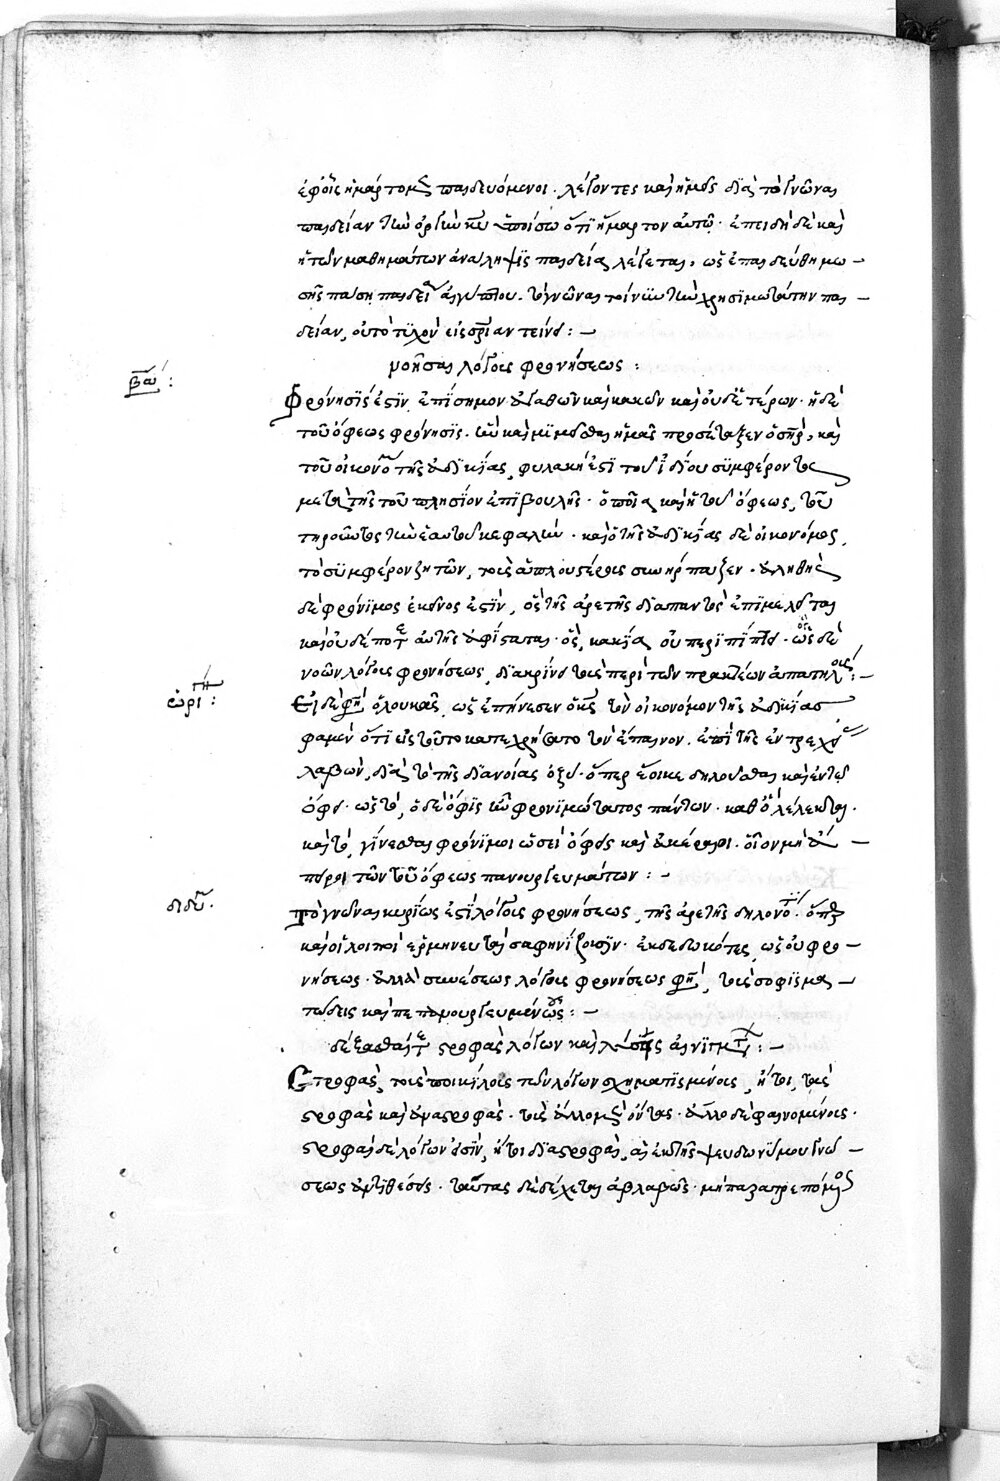 ἐφ' οἷς ἡμάρτομεν παιδευόμενοι· λέγοντες καὶ ἡμεῖς διὰ τὸ γνῶναι
παιδείαν τὴν ὀργὴν κυρίου ὑποίσω ὅτι ἥμαρτον αὐτῷ· ἐπειδὴ δὲ καὶ
ἡ τῶν μαθημάτων ἀνάληψις παιδεία λέγεται, ὡς ἐπαιδεύθη μω–
σῆς πάσῃ παιδείᾳ αἰγυπτίου. τὸ γνῶναι τοίνυν τὴν χρησιμωτάτην παι–
δείαν,
νοῆσαι λόγους φρονήσεως:
βασι:
Φρόνησίς ἐστιν, ἐπίσημον ἀγαθῶν καὶ κακῶν καὶ οὐδετέρων· ἡ δὲ
τοῦ ὄφεως φρόνησις. ἣν καὶ μιμεῖσθαι ἡμᾶς προσέταξεν ὁ σηρ, καὶ
τοῦ οἰκονόμου τῆς ἀδικίας, φυλακή ἐστι τοῦ ἰδίου συμφέροντος
μετὰ τῆς τοῦ πλησίον ἐπιβουλῆς· ὁποία καὶ ἡ τοῦ ὄφεως, τοῦ
τηροῦντος τὴν ἑαυτοῦ κεφαλήν· καὶ ὁ τῆς ἀδικίας δὲ οἰκονόμος,
τὸ συμφέρον ζητῶν, τοῖς ἁπλουστέροις συνήρπαξεν· ἀληθὴς
δὲ φρόνιμος ἐκεῖνος ἐστὶν, ὃς τῆς ἀρετῆς διαπαντὸς ἐπιμελεῖται
καὶ οὐδέποτε αὐτῆς ἀφίσταται· ὃς, κακίᾳ οὐ περιπίπτει· ὡς δὲ
νοῶν λόγους φρονήσεως, διακρίνει τοὺς περὶ τῶν πρακτέων ἀπατηλούς:–
ὠρι:
Εἰ δέ φησι ὁ λουκᾶς, ὡς ἐπήνεσεν ὁ κς τὸν οἰκονόμον τῆς ἀδικίας
φαμὲν ὅτι εἰς τοῦτο κατεχρήσατο τὸν ἔπαινον. ἐπὶ τῆς ἐντρεχείας
λαβὼν, διὰ τὸ τῆς διανοίας ὀξύ· ὅπερ ἔοικε δηλοῦσθαι καὶ ἐν τῷ
ὄφει· ὡς τὸ, ὁ δὲ ὄφις ἦν φρονιμώτατος πάντων· καθὸ λέλεκται.
καὶ τὸ, γίνεσθαι φρόνιμοι ὡσεὶ ὄφεις καὶ ἀκέραιοι. οἷον μὴ ἄ–
πειροι τῶν τοῦ ὄφεως πανουργευμάτων:–
διδύ.
Τὸ γνῶναι κυρίως ἐστὶ λόγους φρονήσεως, τῆς ἀρετῆς δηλονότι· ὅπερ
καὶ οἱ λοιποὶ ἑρμηνευταὶ σαφηνίζουσιν· ἐκδεδωκότες, ὡς οὐ φρο–
νήσεως· ἀλλὰ συνέσεως λόγους φρονήσεως φησὶ, τοὺς σοφισμα–
τώδεις καὶ πεπανουργευμένους:–
δέξασθαί τε στροφὰς λόγων καὶ λύσεις αἰνιγμάτων:–
Στροφὰς, τοὺς ποικίλως τῶν λόγων σχηματισμένους, ἤτοι, τὰς
στροφὰς καὶ ἀναστροφάς. τοὺς ἄλλο μὲν ὄντας· ἄλλο δὲ φαινομένους.
στροφαὶ δὲ λόγων εἰσὶν, ἤτοι διαστροφαὶ, αἱ ἐκ τῆς ψευδωνύμου γνώ–
σεως ἀντιθέσεις· ταύτας δὲ δέχεται ἀβλαβῶς· μὴ παρατρεπόμενος